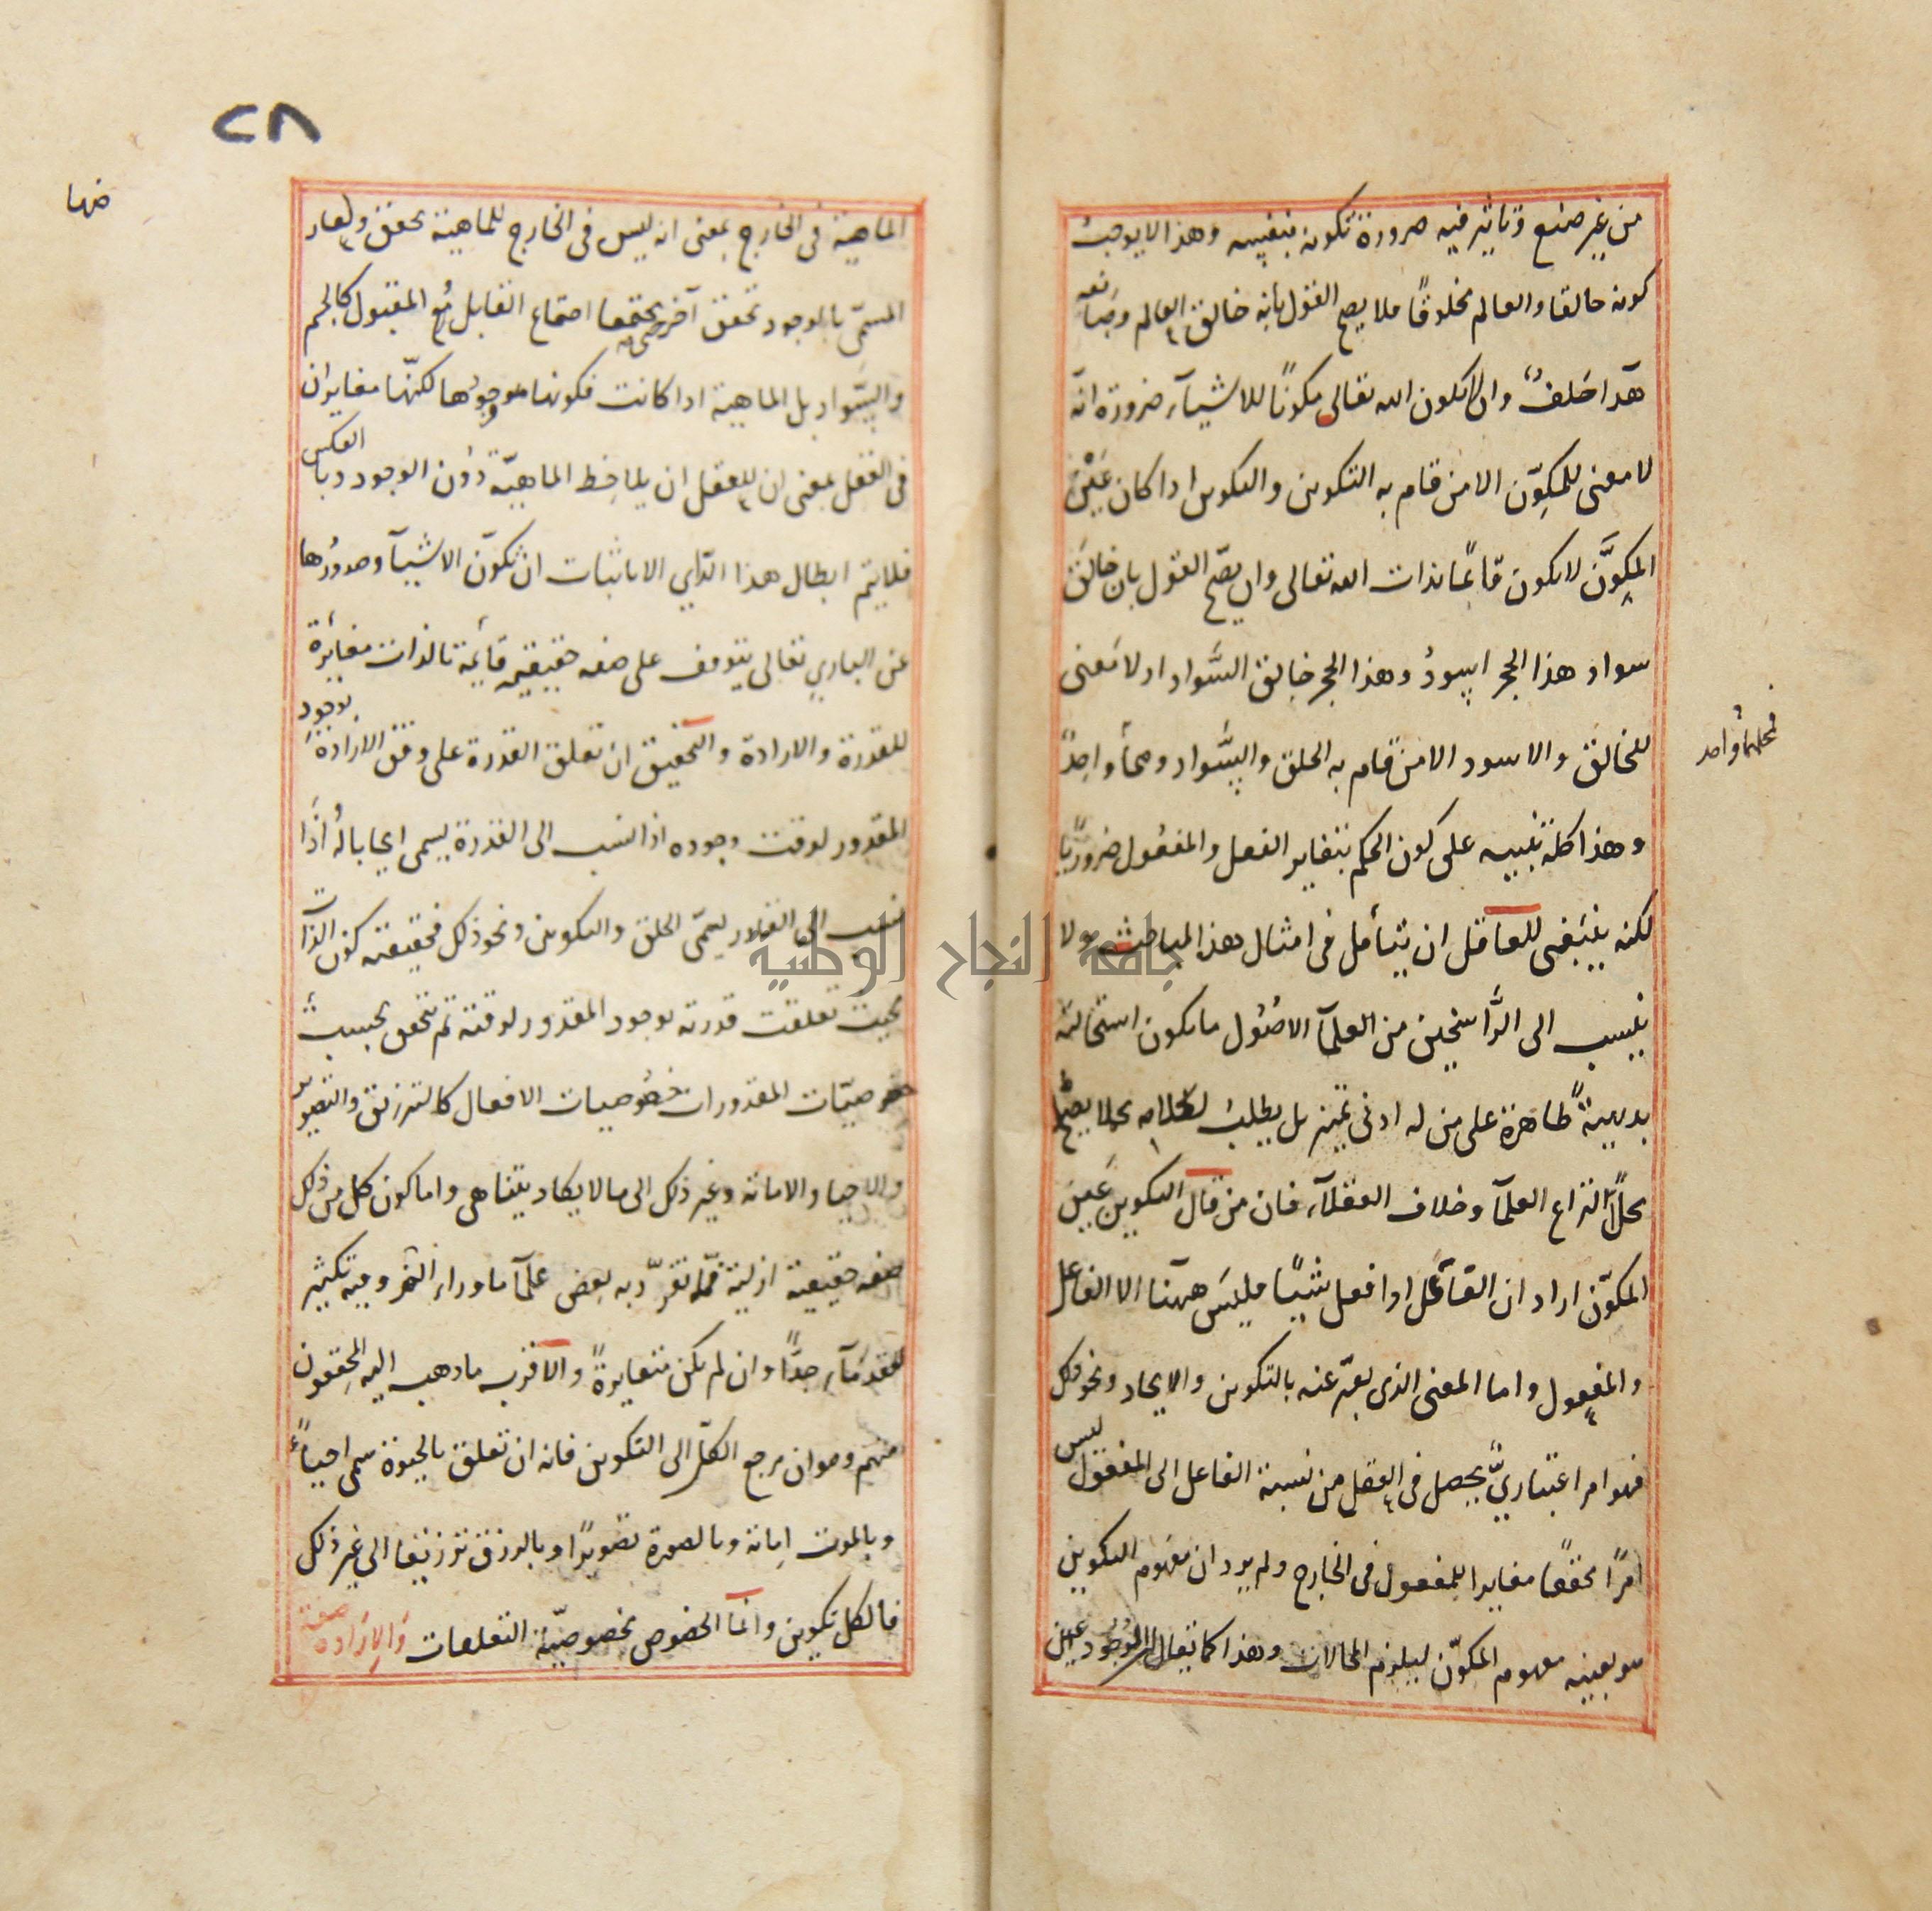 من غير صنع وتاثير فيه ضرورة تكونه بنفسه وهذا لا يوجب
كونه خالقا والعالم مخلوقًا فلا يصح القول بانه خالق العالم وصانعه
هذا خلفٌ وان لا يكون الله تعالى مكونًا للاشيآء ضرورة انه
لا معنى للمكوِّن الا من قام به التكوين والتكوين اذا كان عين
المكوَّن لا يكون قائمًا بذات الله تعالى وان يصحّ القول بان خالق
سواد هذا الحجر اسودُ وهذا الحجر خالق السَّواد اذ لا معنى
للخالق والاسود الا من قام به الخلق والسَّواد وهما واحدً
فمحلهما واحد
وهذا كله تنبيه على كون الحكم بتغاير الفعل والمفعول ضروريًّا
لكنه ينبغي للعاقل ان يتأمل في امثال هذا المباحث ولا
ينسب الى الرَّاسخين من العلمآ الاصُول ما يكون استحالته
بديهيةً ظاهرة على من له ادنى تميز بل يطلب لكلامه محلا يصلح
محلاً لنزاع العلمآ وخلاف العقلآء فان من قال التكوين عين
المكوّن اراد ان الفآعل اذا فعل شيئًا فليسَ ههنا الا الفاعل
والمفعول واما المعنى الذي يعبّر عنه بالتكوين والايجاد ونحو ذلك
فهو امر اعتباريٌّ يحصل في العقل من نسبة الفاعل الى المفعول ليس
امرًا محققًا مغايرا للمفعول في الخارج ولم يرد ان مفهوم التكوين
هو بعينه مفهوم المكوّن ليلزم المحالات وهذا كما يقال ان الوُجُود عين
٢٨
الماهية في الخارج بمعنى انه ليس في الخارج للماهية تحقق ولعار
ضها
المسمّى بالوجود تحقق آخر حتى يجتمعا اجتماع القابل مع المقبول كالجسم
والسَّواد بل الماهية اذا كانت فكونها هو وجودها لكنّها مغايران
في العقل بمعنى ان للعقل ان يلاحظ الماهيّة دون الوجود وبالعكس
فلا يتم ابطال هذا الرّاي الا باثبات ان تكوّن الاشيآ وصدورُها
عن الباري تعالى يتوقف على صفه حقيقيه قائمة بالذات مغايرة
للقدرة والارادة والتحقيق ان تعلق القدرة على وفق الارادة بوجود
المقدور لوقت وجوده اذا نسب الى القدرة يسمى ايجابا له اذا
نسب الى القادر يسمّى الخلق والتكوين ونحو ذلك فحقيقته كون الذات
بحيث تعلقت قدرته بوجود المقدور لوقته ثم تتحقق بحسب
خصوصيّات المقدورات خصُوصيات الافعال كالترزيق والتصوير
والاحيا والاماته وغير ذلك الى ما لا يكاد يتناهى واما كون كل من ذلك
صفه حقيقية ازلية فمّما تفرّد به بعض علمآ ما وراء النّهر وفيه تكثير
للقدمآء جدًّا وان لم يكن متغايرةً والاقرب ما ذهب اليه المحققون
منهم وهو ان مرجع الكلّ الى التكوين فانه ان تعلق بالحيوة سمى احياءً
وبالموت اماتة وبالصورة تصويرًا وبالرزق ترزيقا الى غير ذلك
فالكل تكوين وانمآ الخصوص بخصوصيّة التعلقات وَالارَاده صفة
جامعة النجاح الوطنية